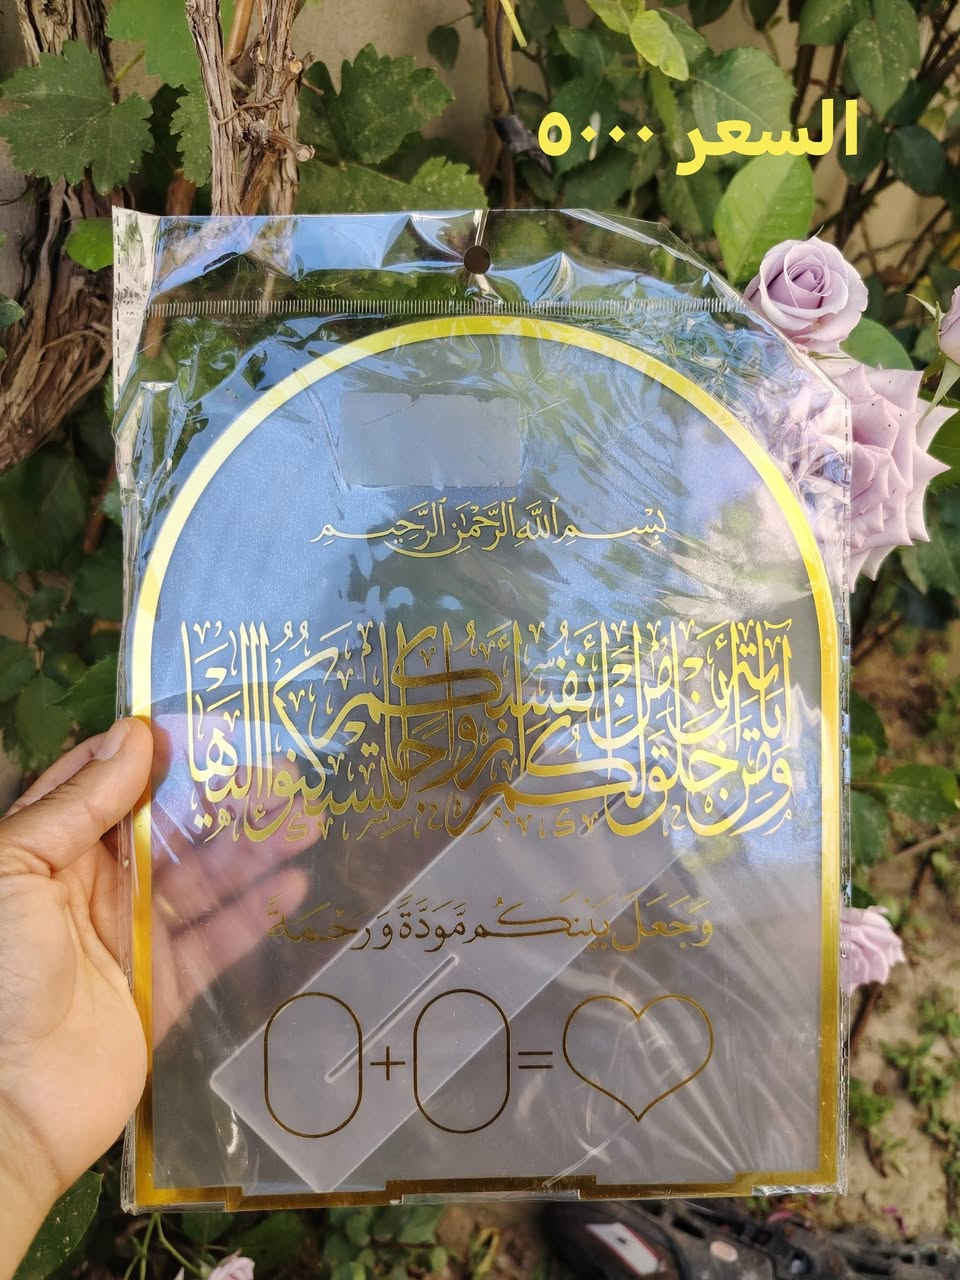 السعر ٥٠٠٠
بِسْمِ ٱللَّهِ ٱلرَّحْمَٰنِ ٱلرَّحِيمِ
وَمِنْ آيَاتِهِ أَنْ خَلَقَ لَكُم مِّنْ أَنفُسِكُمْ أَزْوَاجًا لِّتَسْكُنُوا إِلَيْهَا
وَجَعَلَ بَيْنَكُم مَّوَدَّةً وَرَحْمَةً
+ =